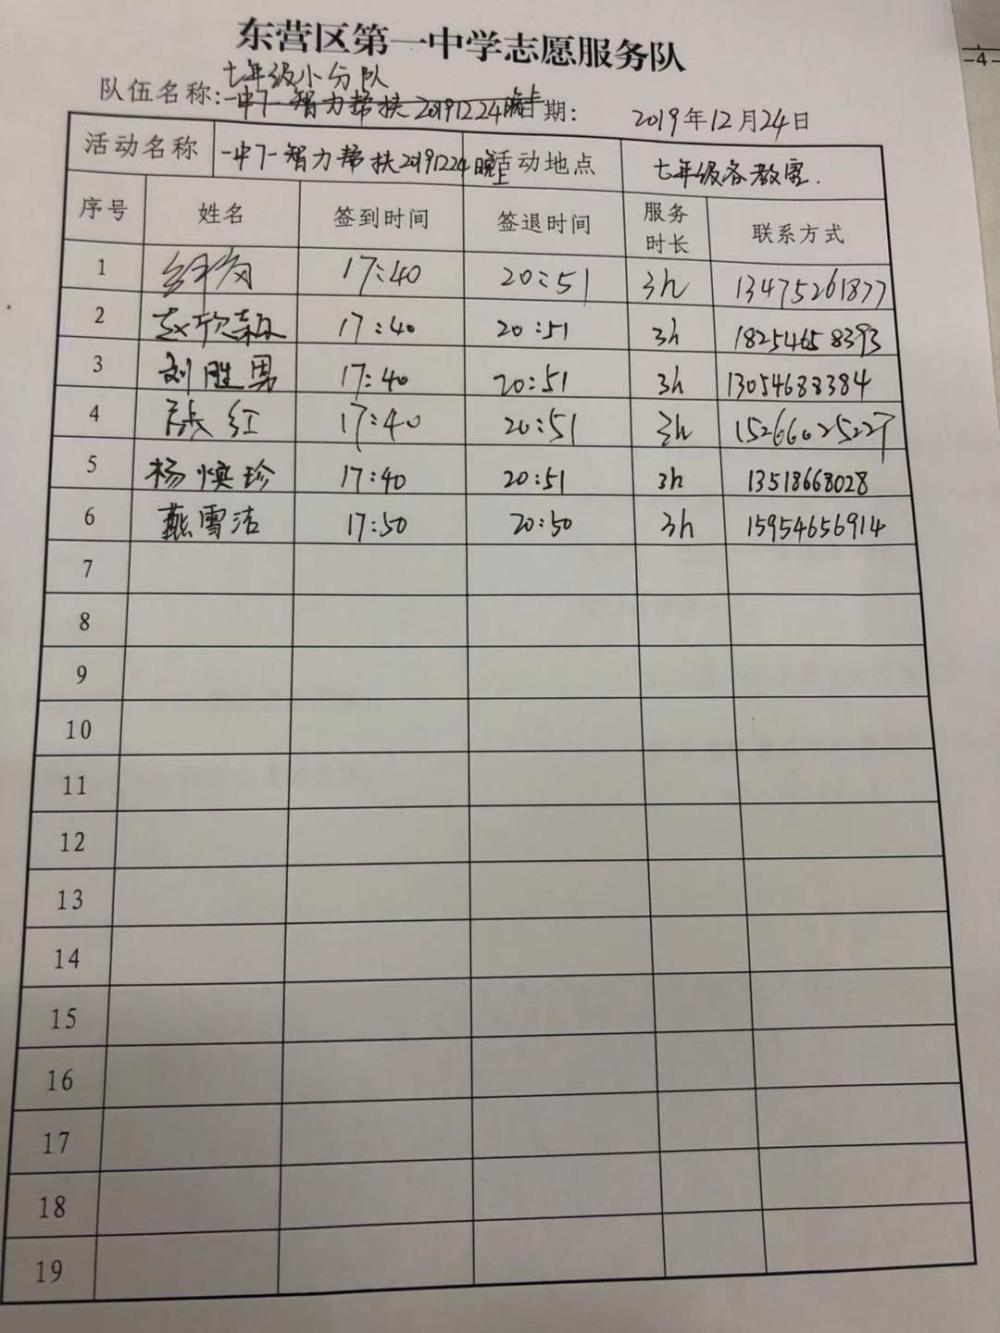 东营区第一中学志愿服务队
七年级小分队
队伍名称:一中7一智力帮扶20191224晚上期: 2019年12月24日
活动名称 一中7一智力帮扶20191224晚上 活动地点 七年级各教室.
序号 姓名 签到时间 签退时间 服务时长 联系方式
1 17:40 20:51 3h 13475261877
2 赵欣颖 17:40 20:51 3h 18254658393
3 刘胜男 17:40 20:51 3h 13054688384
4 陈红 17:40 20:51 3h 15266025227
5 杨焕珍 17:40 20:51 3h 13518668028
6 燕雪洁 17:50 20:50 3h 15954656914
7
8
9
10
11
12
13
14
15
16
17
18
19
-4-